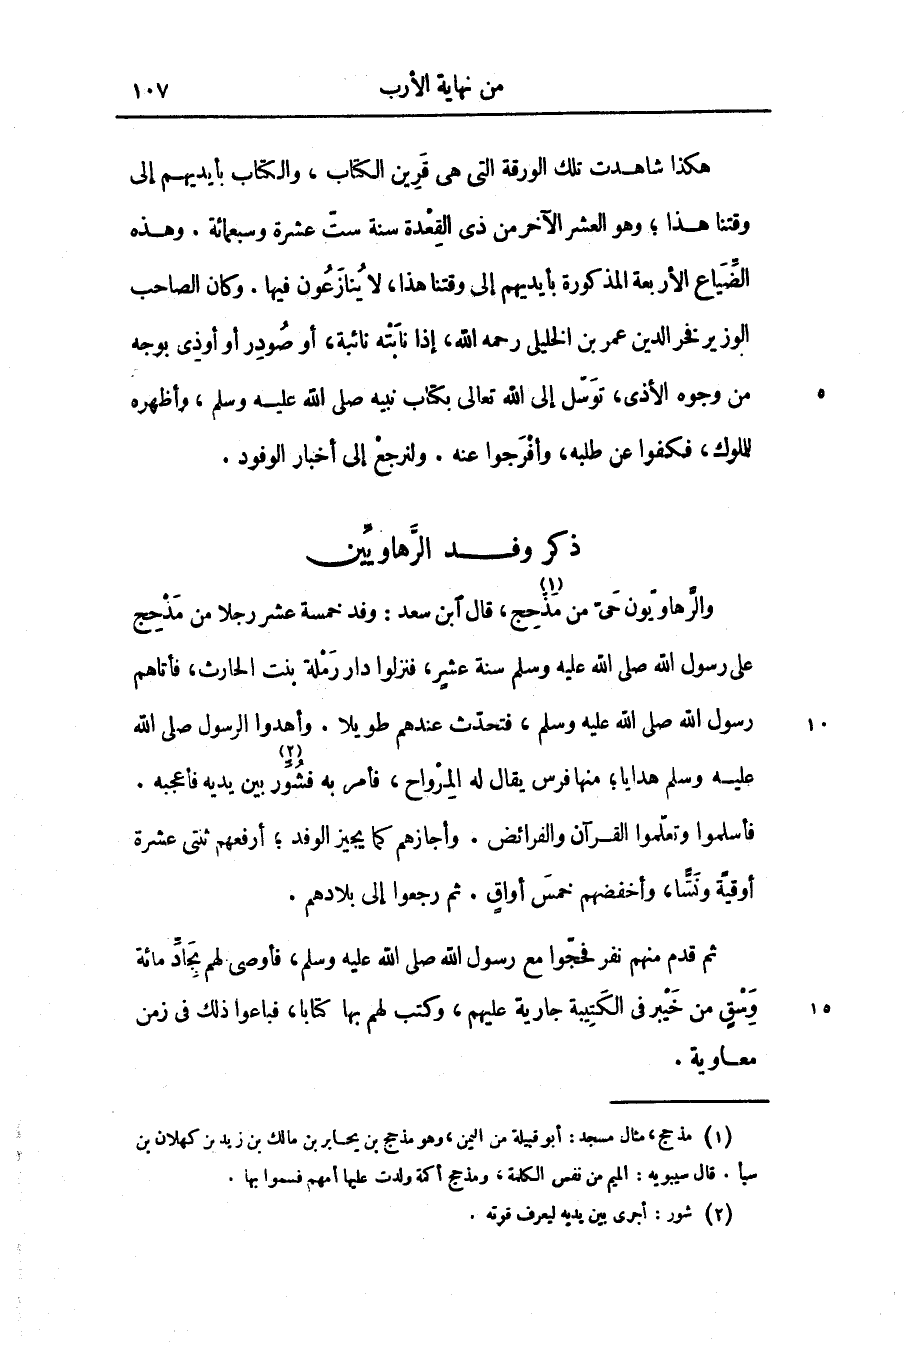 من نهاية الأرب ١٠٧
هكذا شاهدت تلك الورقة التى هى قَرِين الكتاب ، والكتاب بأيديهم إلى
وقتنا هذا ؛ وهو العشر الآخر من ذى القِعْدة سنة ستّ عشرة وسبعمائة . وهذه
الضِّيَاع الأربعة المذكورة بأيديهم إلى وقتنا هذا، لا يُنازَعُون فيها . وكان الصاحب
الوزير فخر الدين عمر بن الخليلى رحمه الله، إذا نابَتْه نائبة، أو صُودِر أو أوذى بوجه
من وجوه الأذى، توَسّل إلى الله تعالى بكتاب نبيه صلى الله عليه وسلم ، وأظهره ٥
للملوك، فكفوا عن طلبه، وأفْرَجوا عنه . ولنرجعْ إلى أخبار الوفود .
ذكر وفد الرَّهاويِّين
والرَّهاويّون حَىّ من مَذْحِج(١)، قال ٱبن سعد : وفد خمسة عشر رجلا من مَذْحِج
على رسول الله صلى الله عليه وسلم سنة عشرٍ، فنزلوا دار رَمْلة بنت الحارث، فأتاهم
رسول الله صلى الله عليه وسلم ، فتحدّث عندهم طويلا . وأهدوا الرسول صلى الله ١٠
عليه وسلم هدايا؛ منها فرس يقال له المِرْواح ، فأمر به فشُوِّر(٢) بين يديه فأعجبه .
فأسلموا وتعلّموا القرآن والفرائض . وأجازهم كما يجيز الوفد ؛ أرفعهم ثنتى عشرة
أوقيّة ونَشًّا، وأخفضهم خمسَ أواقٍ . ثم رجعوا إلى بلادهم .
ثم قدم منهم نفر فحجّوا مع رسول الله صلى الله عليه وسلم، فأوصى لهم بِجَادِّ مائة
وَسْقٍ من خَيْبر فى الكَتِيبة جارية عليهم ، وكتب لهم بها كتابا، فباعوا ذلك فى زمن ١٥
معاوية .
(١) مذحج، مثال مسجد : أبو قبيلة من اليمن ، وهو مذحج بن يحابر بن مالك بن زيد بن كهلان بن
سبأ . قال سيبويه : الميم من نفس الكلمة ، ومذحج أكمة ولدت عليها أمهم فسموا بها .
(٢) شور : أجرى بين يديه ليعرف قوته .